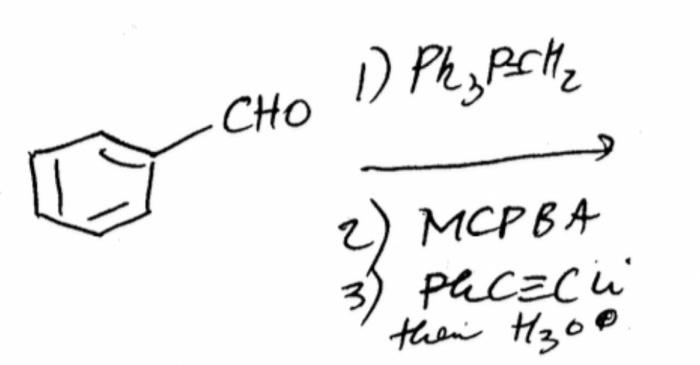 CHO
1) Ph₃P=CH₂
2) MCPBA
3) PhC≡CLi
then H₃O⊕